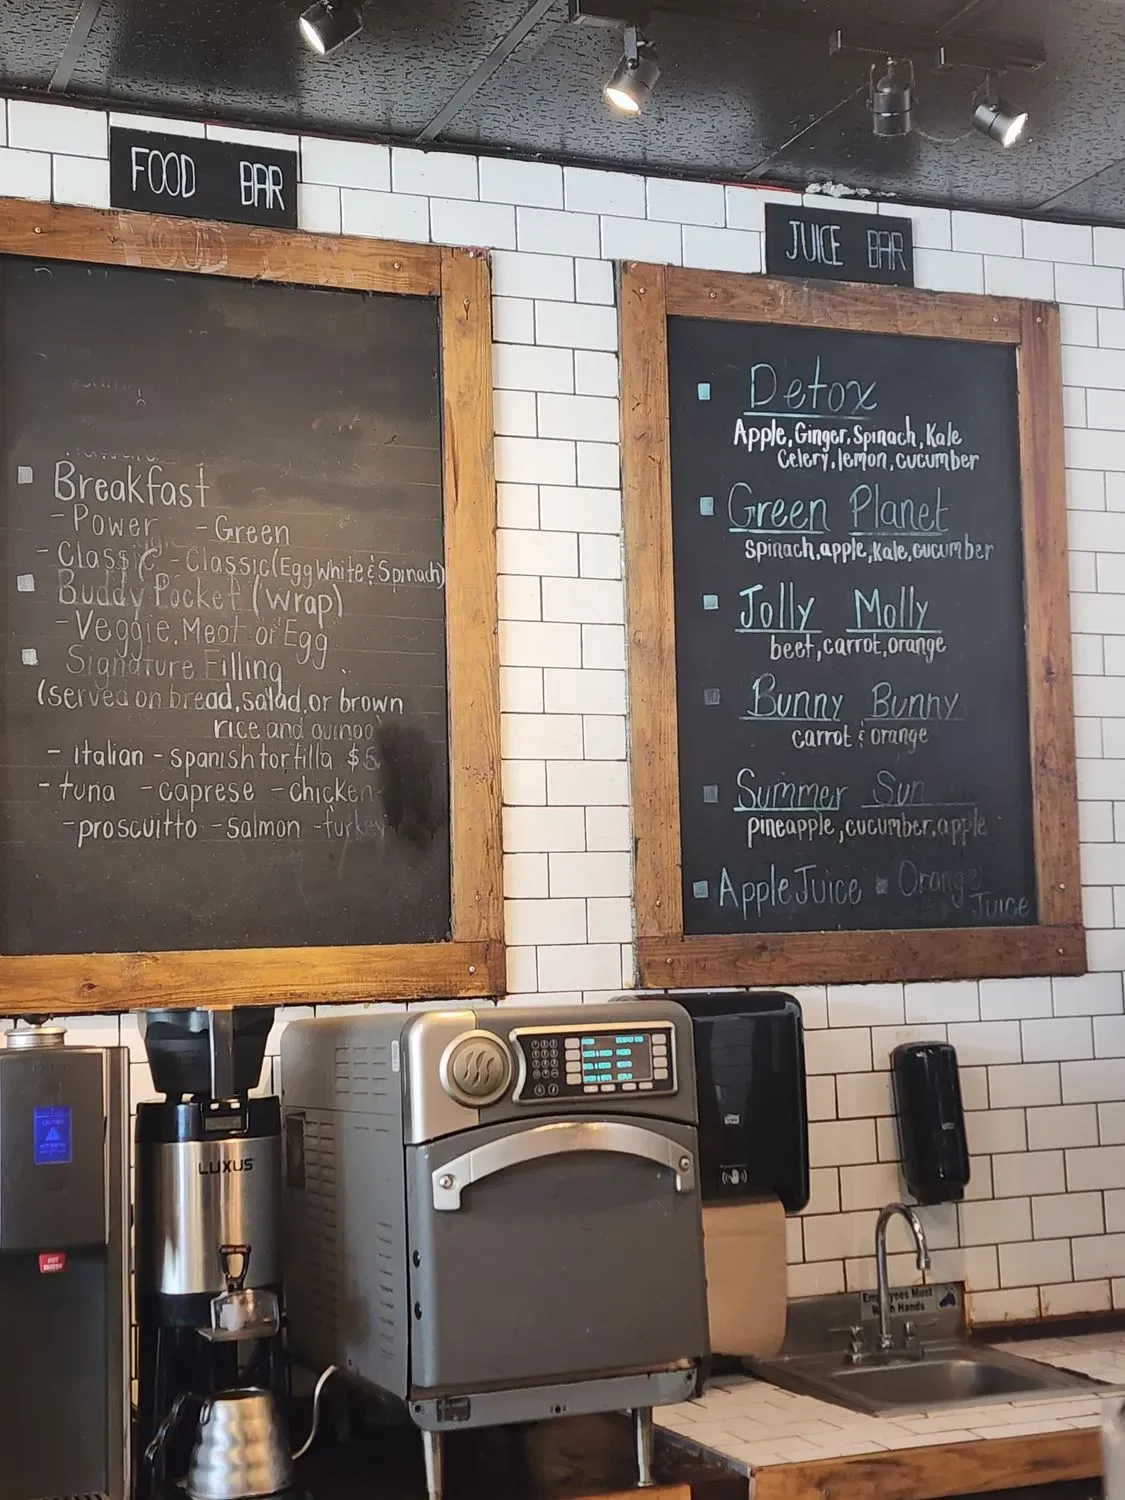 FOOD BAR
Breakfast
- Power - Green
- Classic - Classic (Egg White & Spinach)
Buddy Pocket (wrap)
- Veggie, Meat or Egg
Signature Filling
(served on bread, salad, or brown
rice and quinoa
- italian - spanish tortilla $5
- tuna - caprese - chicken
- proscuitto - Salmon - turkey
JUICE BAR
Detox
Apple, Ginger, Spinach, Kale
Celery, lemon, cucumber
Green Planet
Spinach, apple, Kale, cucumber
Jolly Molly
beet, carrot, orange
Bunny Bunny
carrot & orange
Summer Sun
pineapple, cucumber, apple
Apple Juice Orange
Juice
LUXUS
HOT
WATER
Employees Must
Wash Hands